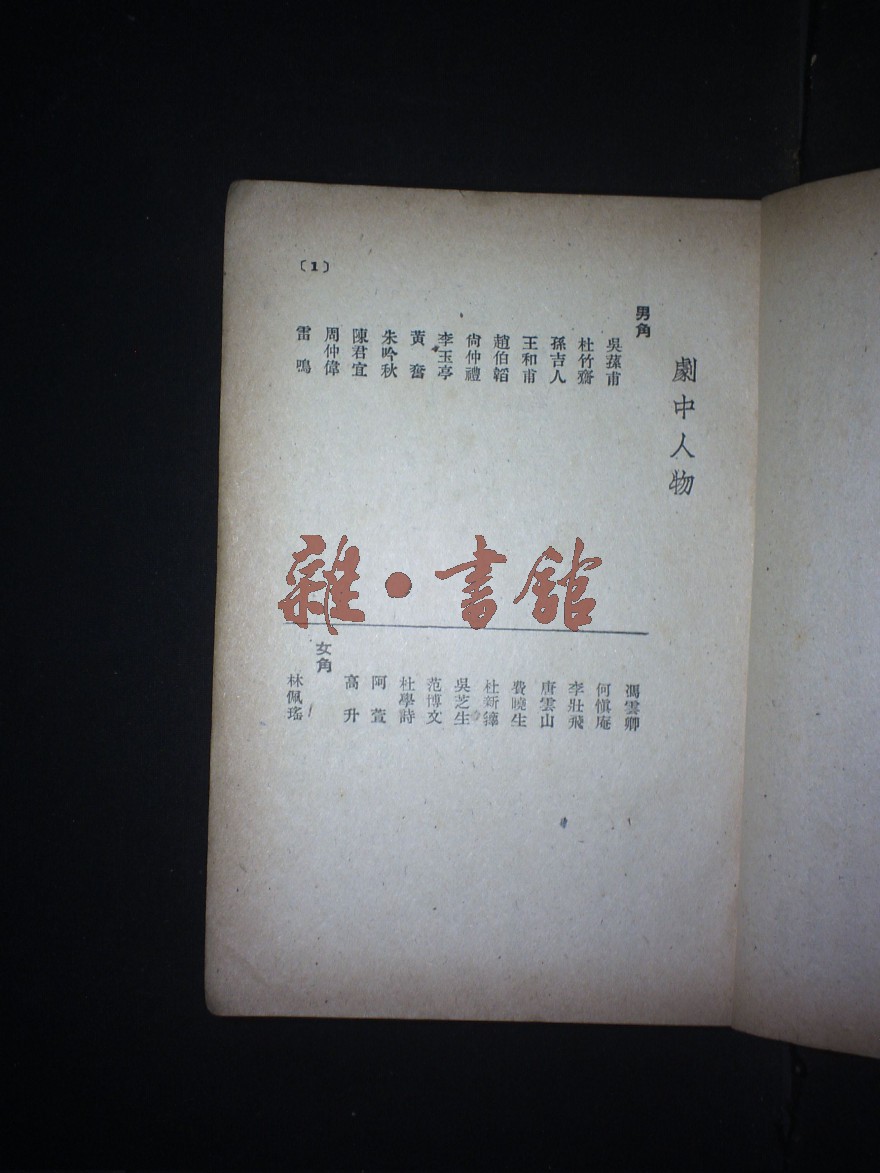 劇中人物
男角
吳蓀甫
杜竹齋
孫吉人
王和甫
趙伯韜
尙仲禮
李玉亭
黃奮
朱吟秋
陳君宜
周仲偉
雷鳴
馮雲卿
何愼庵
李壯飛
唐雲山
費曉生
杜新籜
吳芝生
范博文
杜學詩
阿萱
高升
女角
林佩瑤
〔1〕
雜·書館